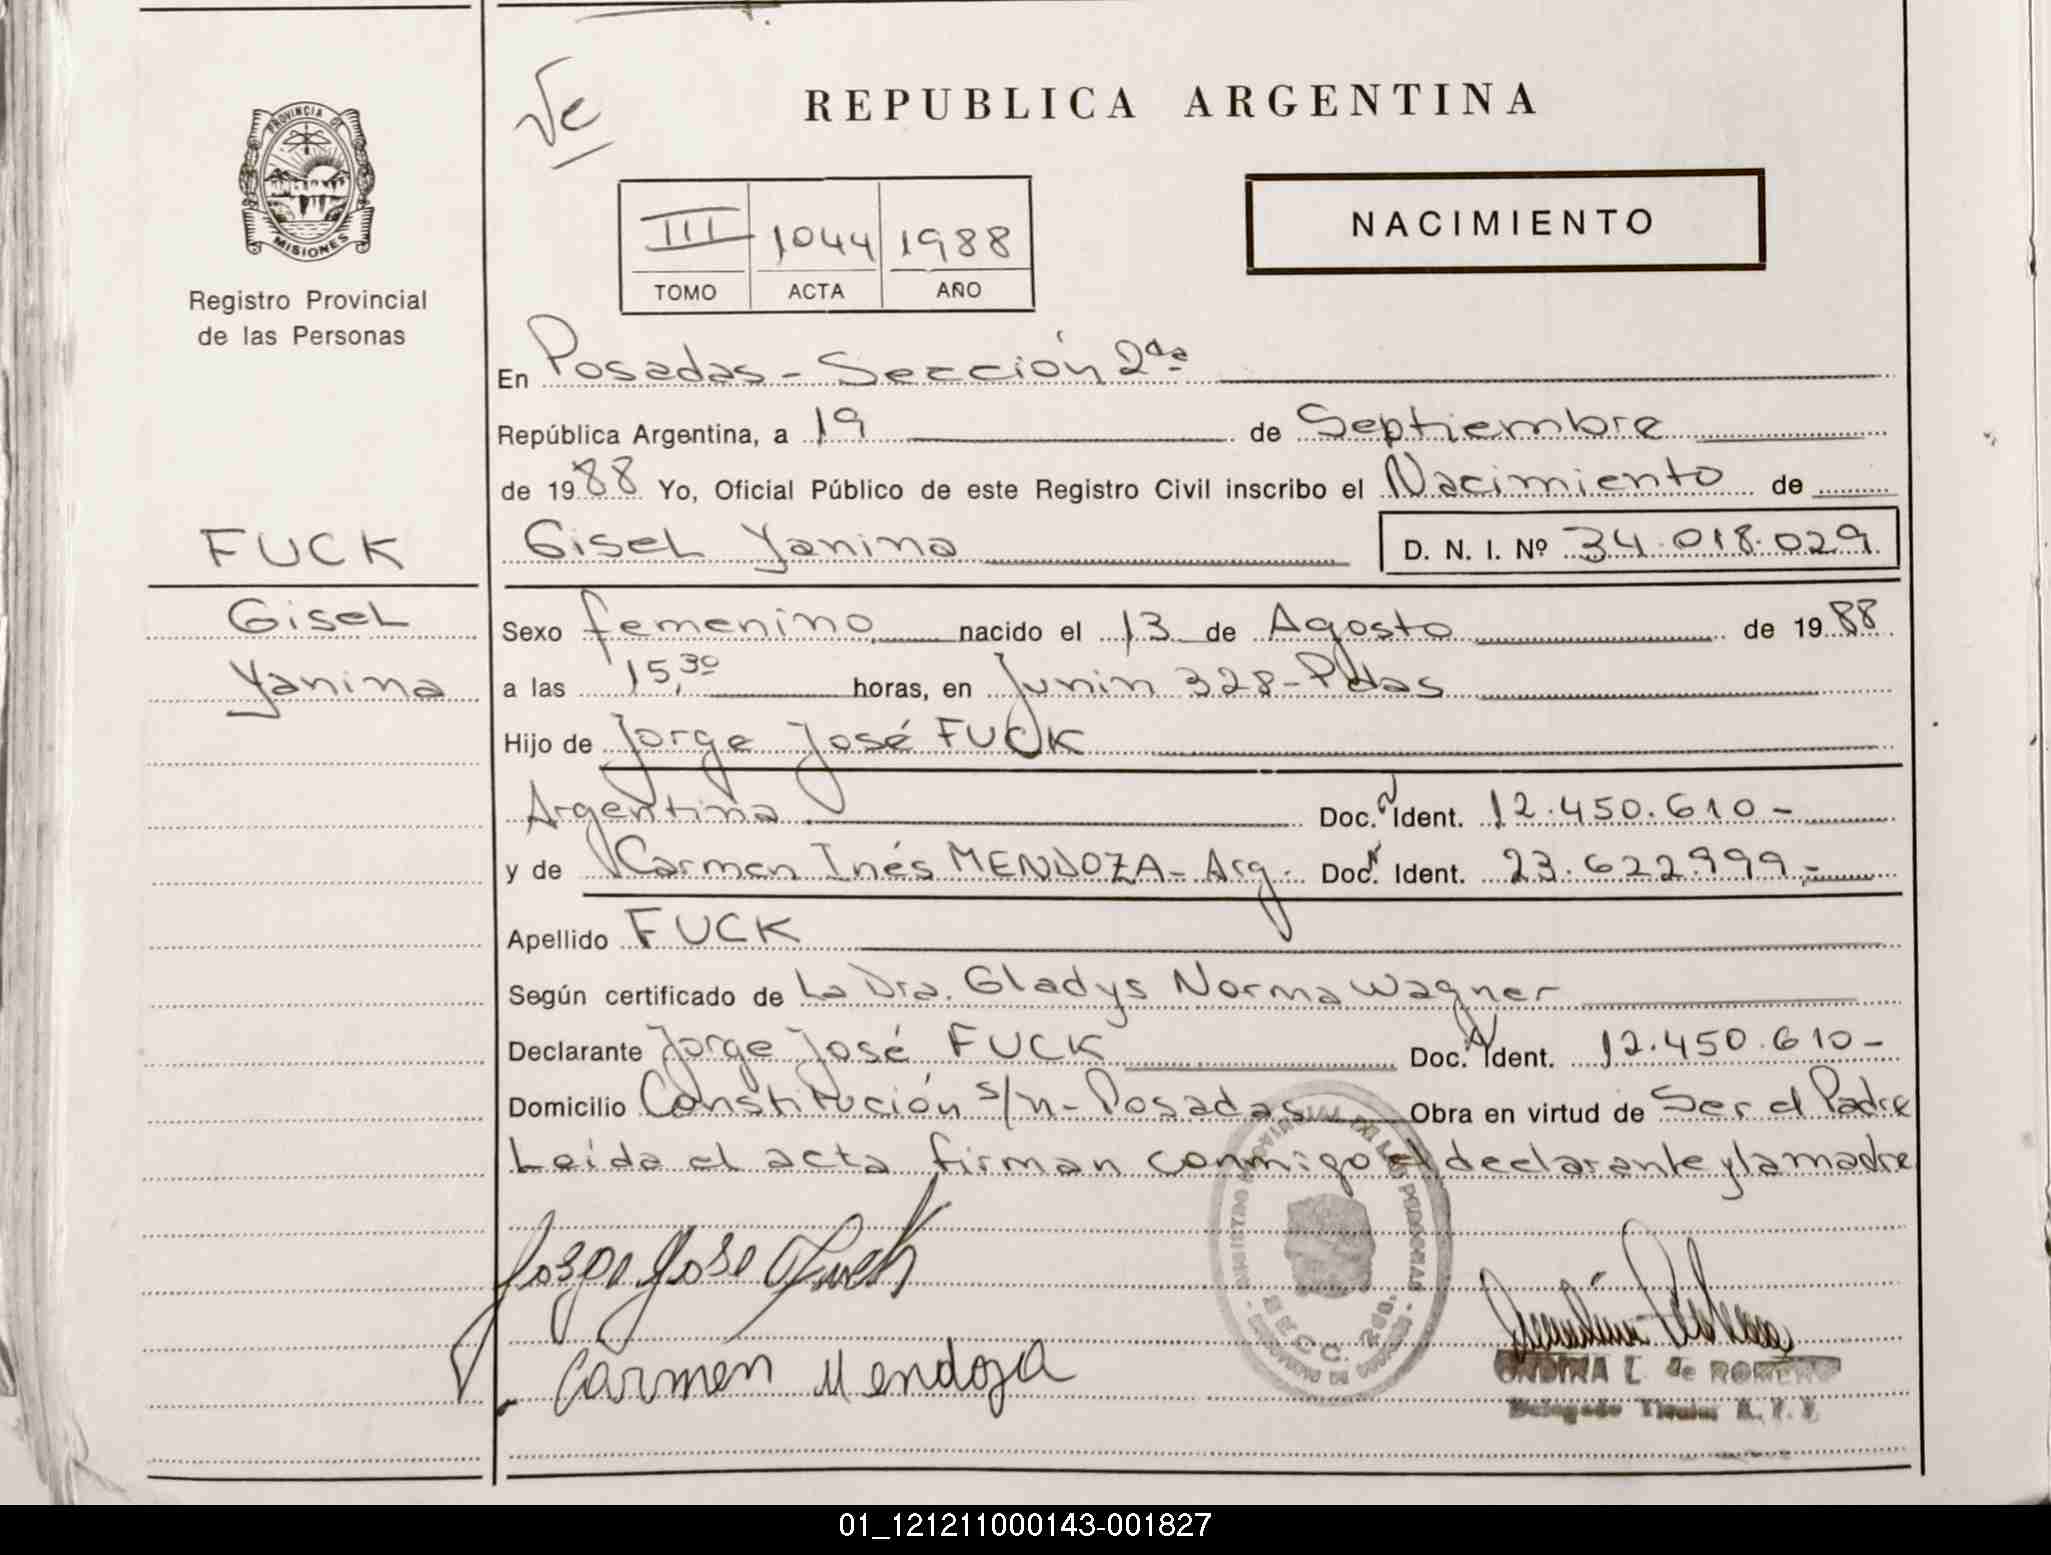 REPUBLICA ARGENTINA
PROVINCIA DE
MISIONES
Registro Provincial
de las Personas
III 1044 1988
TOMO ACTA AÑO
NACIMIENTO
En Posadas - Sección 2da
República Argentina, a 19 de Septiembre
de 1988 Yo, Oficial Público de este Registro Civil inscribo el Nacimiento de
FUCK
Gisel Yanina D. N. I. Nº 34.018.029
Gisel
Yanina
Sexo femenino nacido el 13 de Agosto de 1988
a las 15,30 horas, en Junin 328-Pdas
Hijo de Jorge José FUCK
Argentina Doc. Ident. 12.450.610-
y de Carmen Inés MENDOZA- Arg. Doc. Ident. 23.622.999.-
Apellido FUCK
Según certificado de La Dra. Gladys Norma Wagner
Declarante Jorge José FUCK Doc. Ident. 12.450.610-
Domicilio Constitución s/n- Posadas Obra en virtud de Ser el Padre
Leida el acta firman conmigo el declarante y la madre
Jorge Jose Fuck
Carmen Mendoza
ONDINA L. de ROMERO
01_121211000143-001827